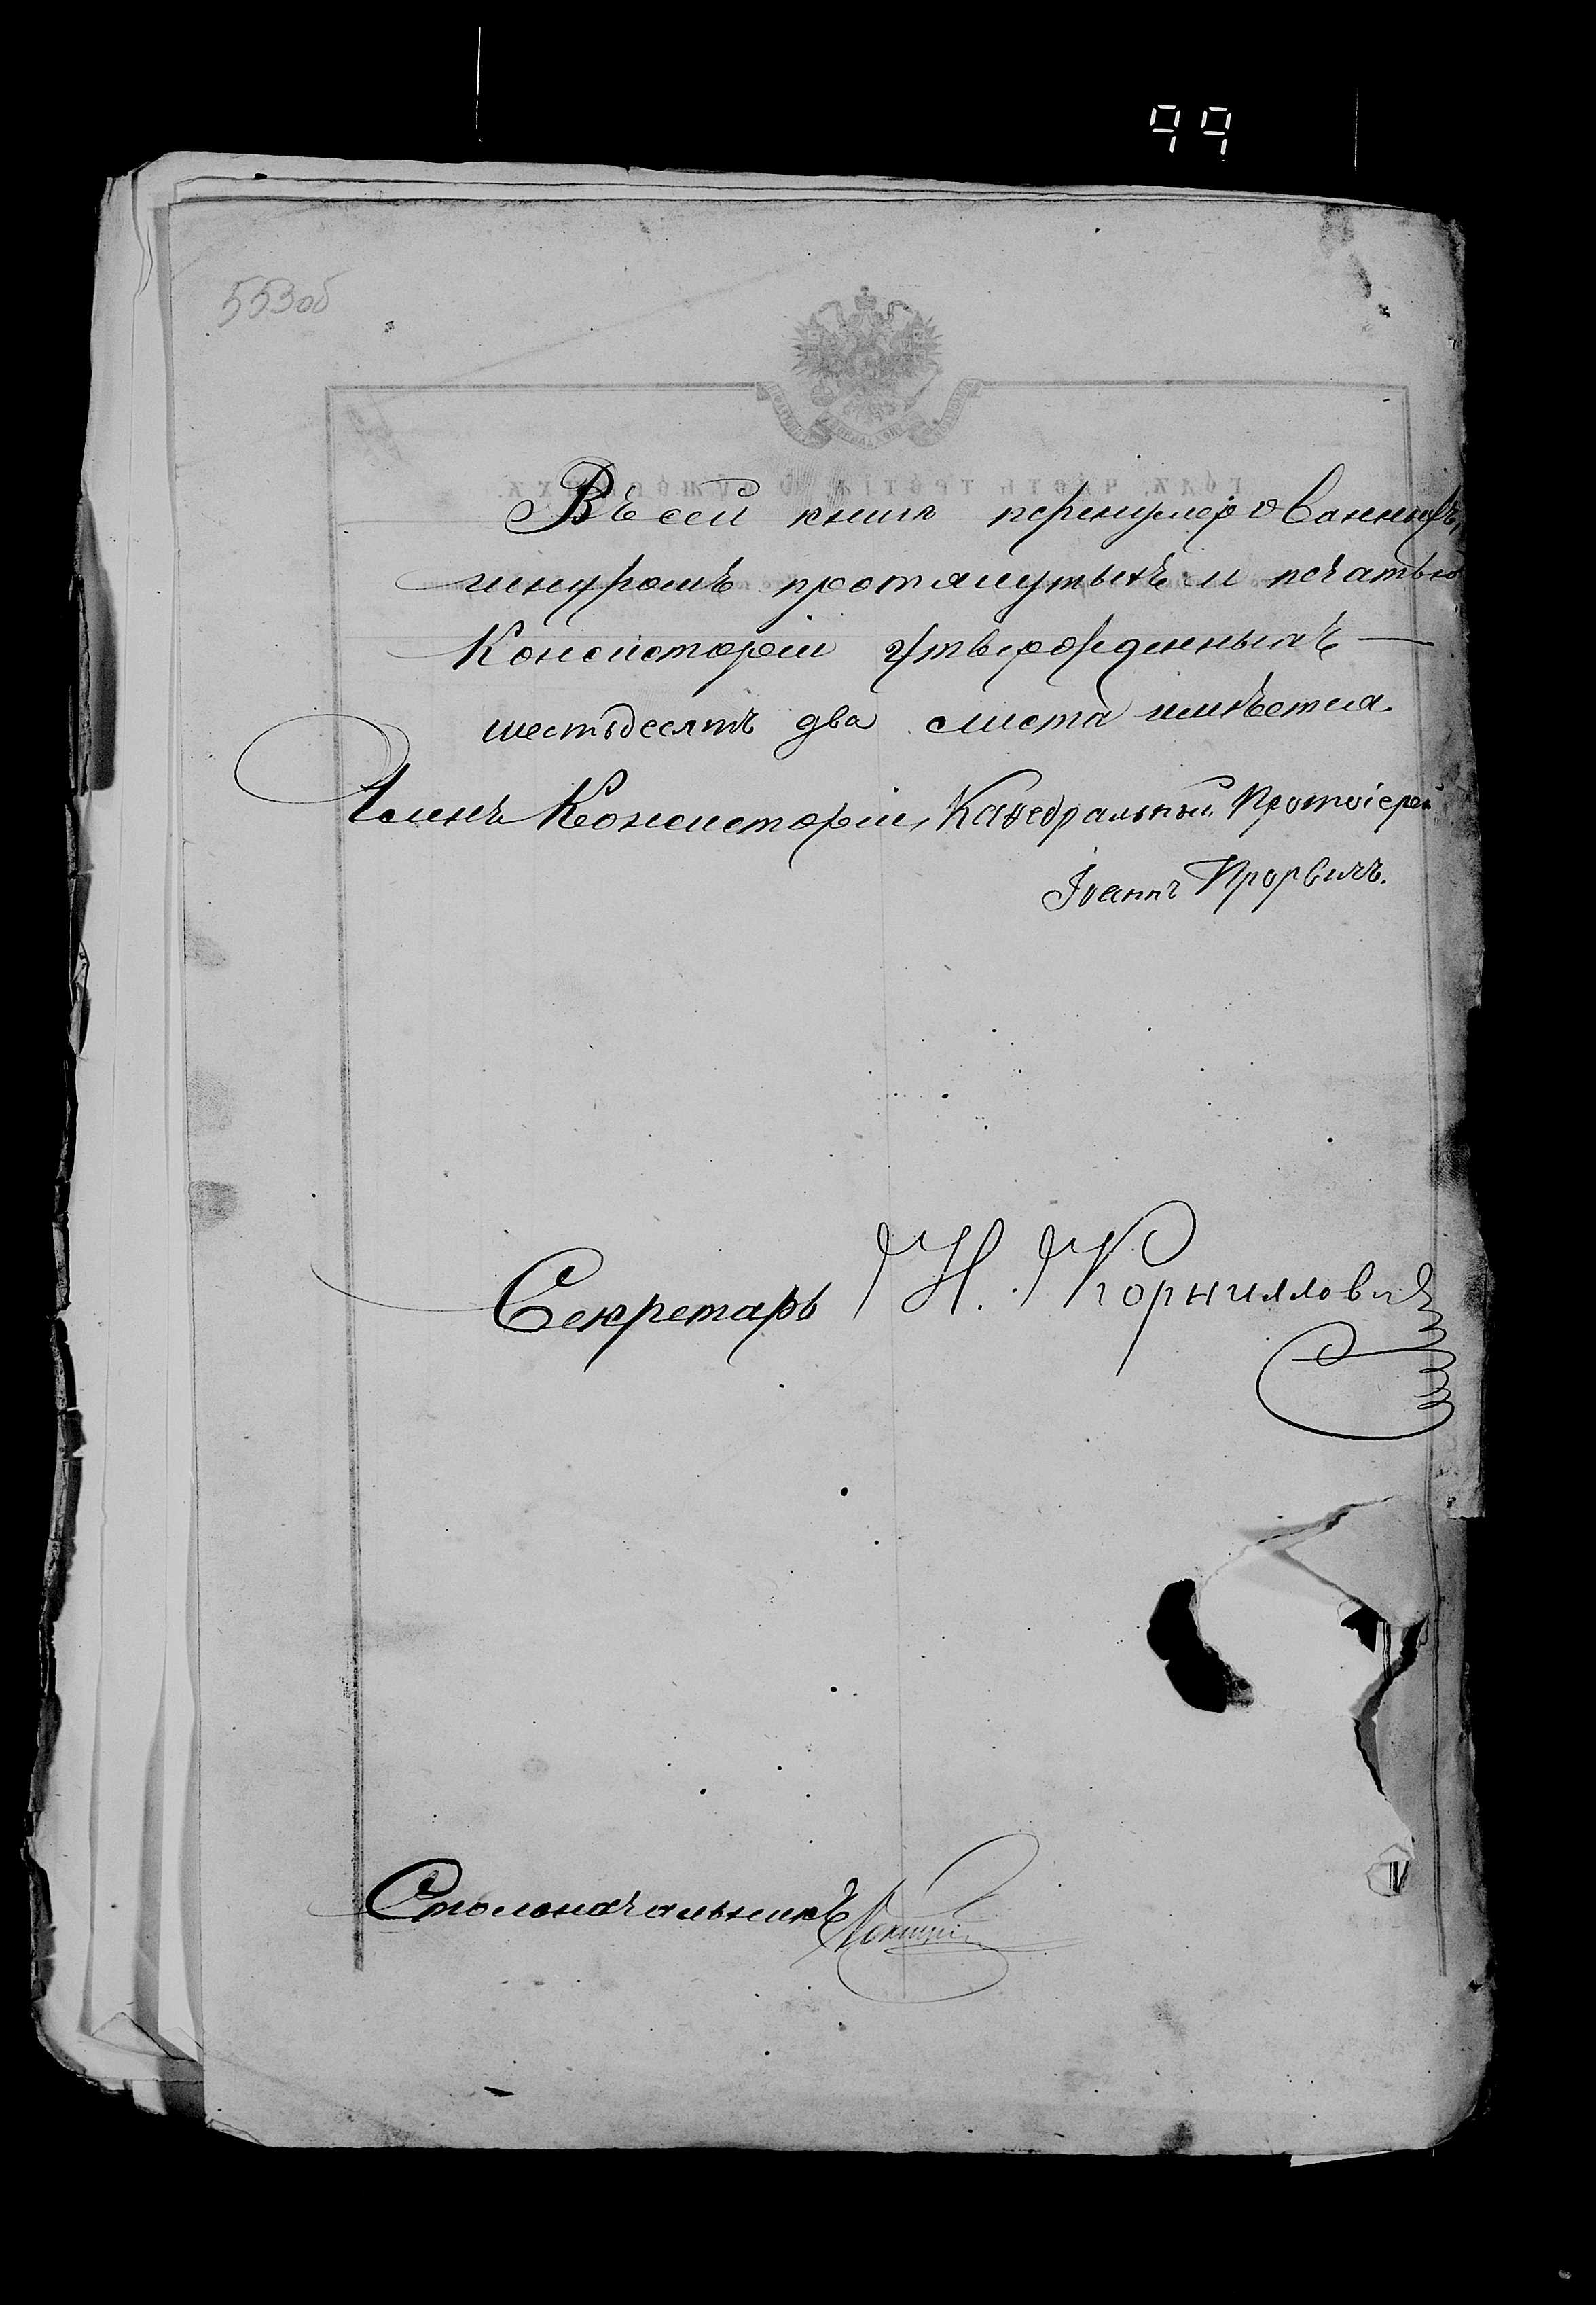 99
553об
Въ сей книгѣ перенумерованныхъ,
шнуромъ протянутыхъ и печатью
Консисторіи утвержденныхъ —
шестьдесятъ два листа имѣется.
Членъ Консисторіи, Каѳедральный Протоіерей
Іоаннъ
Секретарь Н. Корниллович
Столоначальникъ